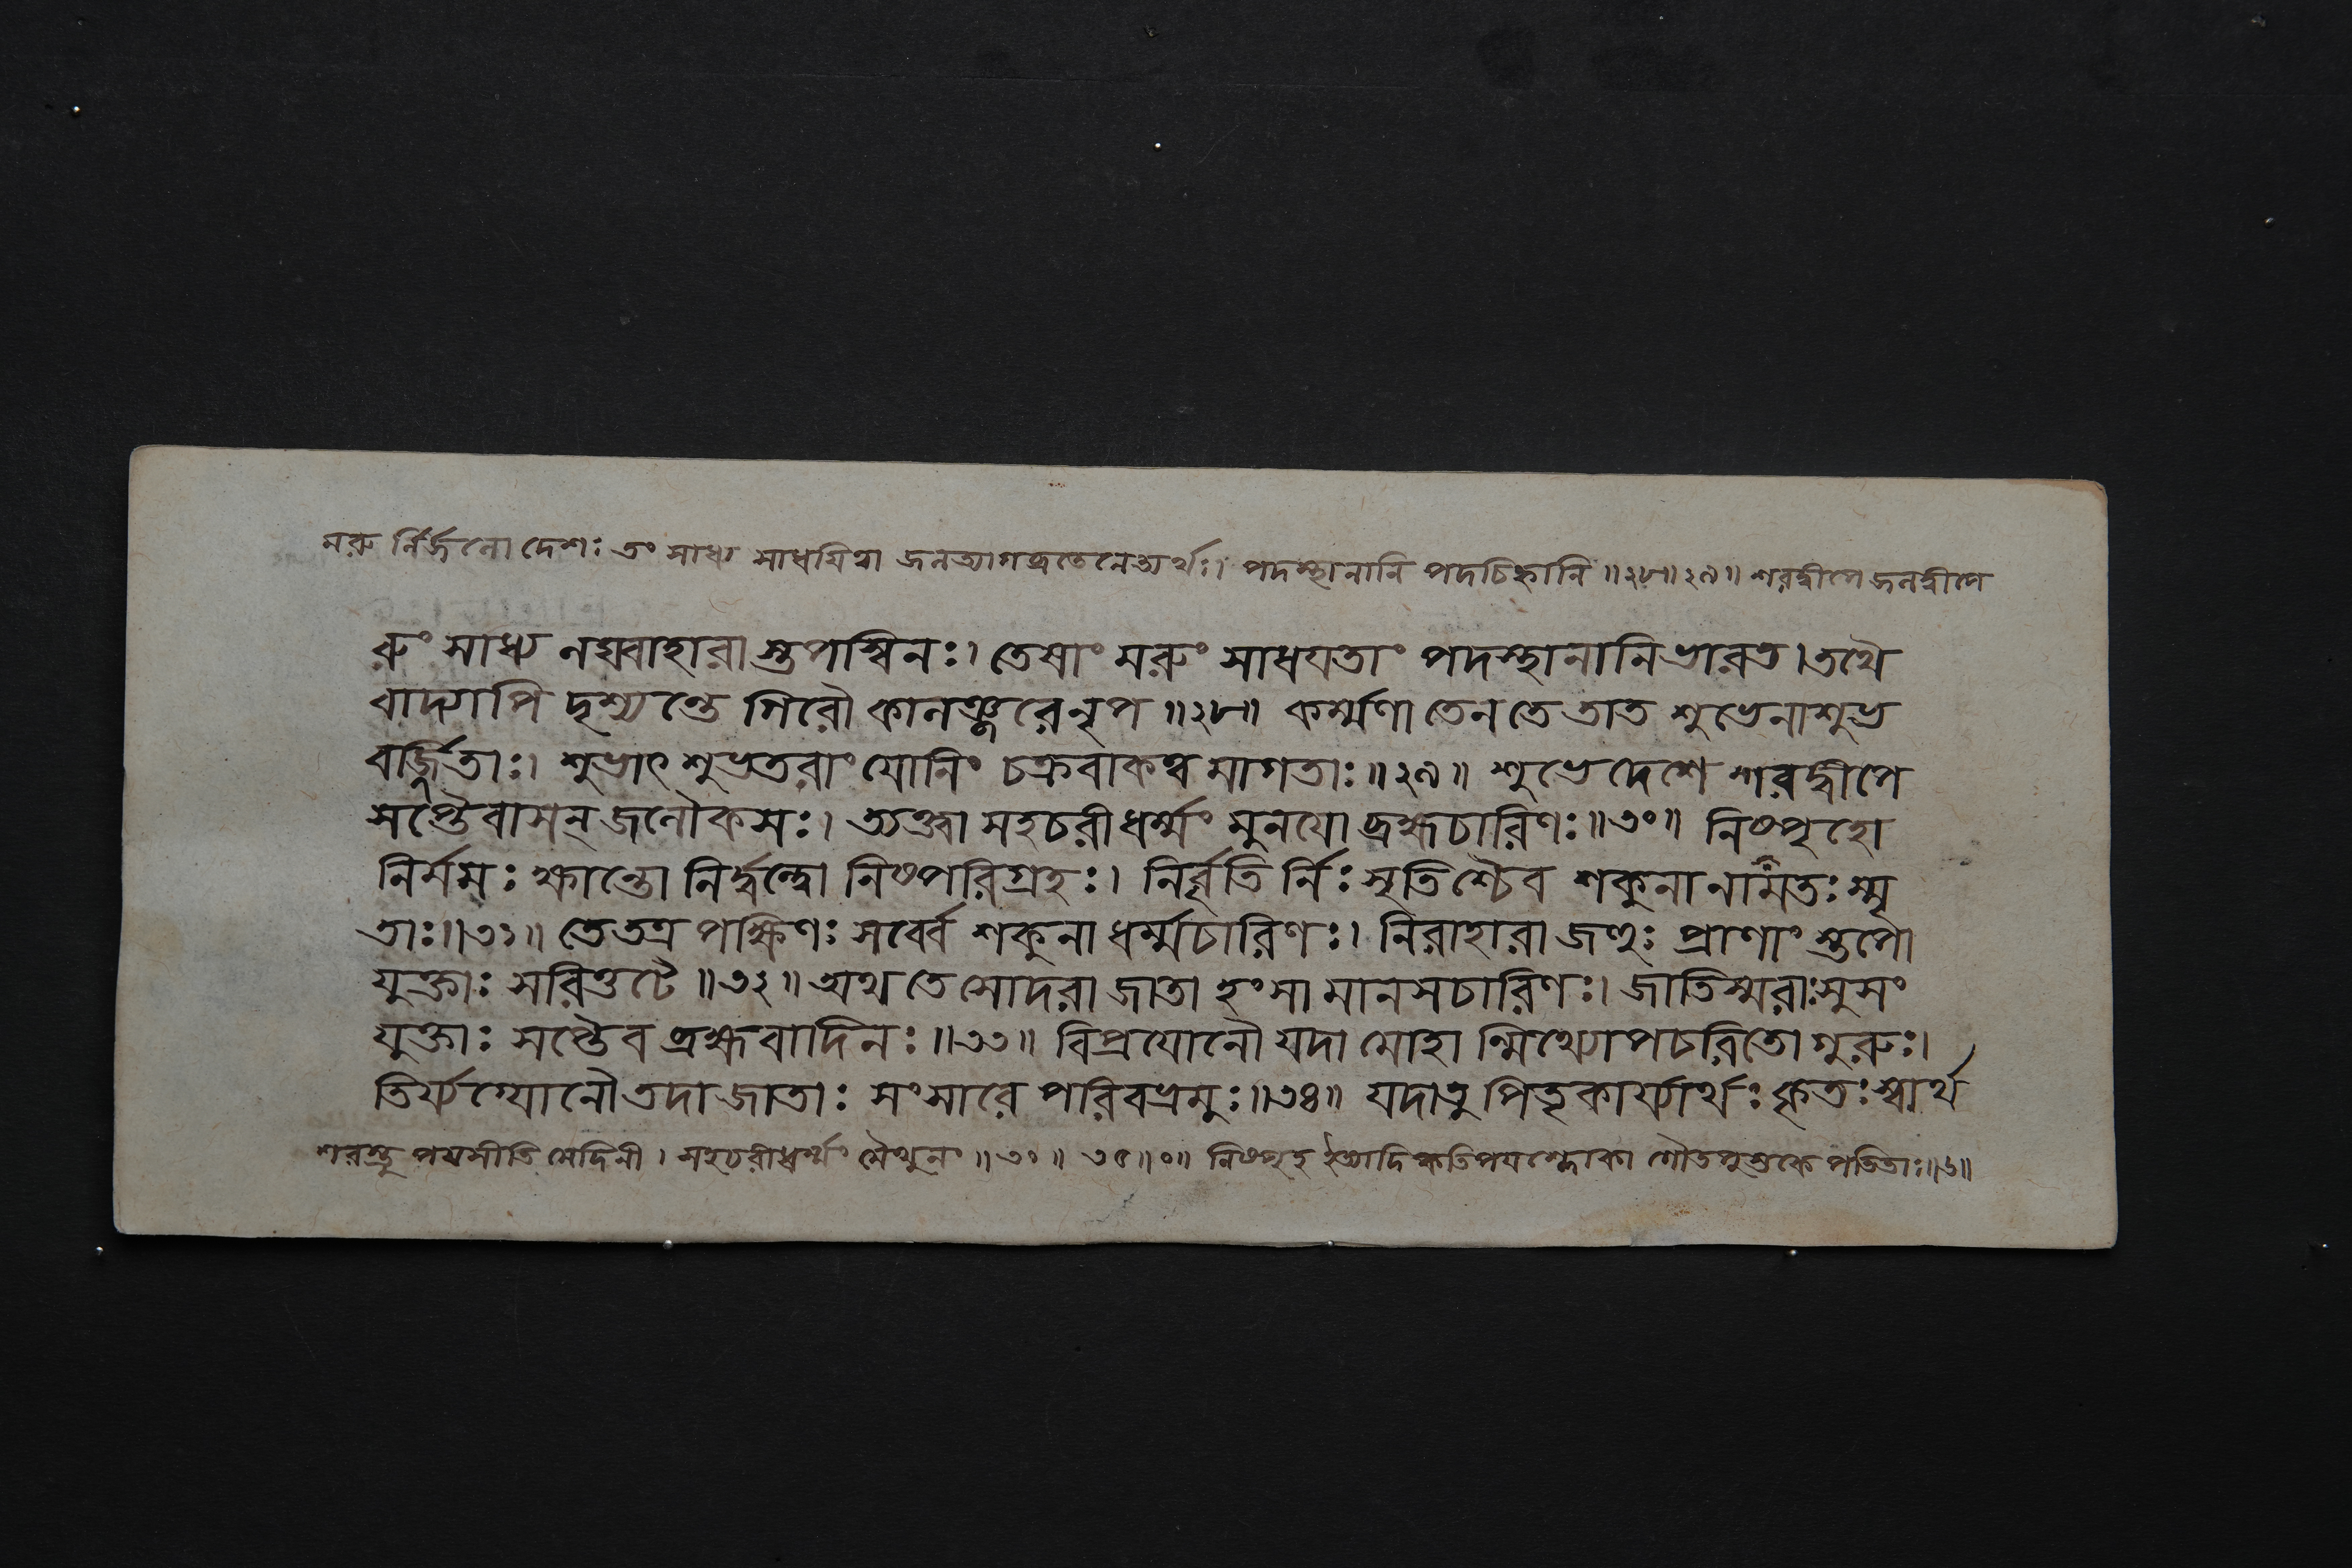 মরু র্নির্জনো দেশঃ তং সাধ্য সাধয়িত্বা জনত্যাগব্রতেনেত্যর্থঃ। পদস্থানানি পদচিহ্নানি॥২৮॥২৯॥ শরদ্বীপে জনদ্বীপে
রুং সাধ্য নঘ্বাহারা স্তপস্বিনঃ। তেষাং মরুং সাধযতাং পদস্থানানি ভারত। তথৈ
বাদ্যাপি দৃশ্যন্তে গিরৌ কানঞ্জরে নৃপ॥২৮॥ কর্ম্মণা তেন তে তাত শুভেনাশুভ
বর্জ্জিতাঃ। শুভাৎ শুভতরাং যোনিং চক্রবাকত্ব মাগতাঃ॥২৯॥ শুভে দেশে শরদ্বীপে
সপ্তৈবাসন্ জনৌকসঃ। ত্যক্ত্বা সহচরীধর্ম্মং মুনযো ব্রহ্মচারিণঃ॥৩০॥ নিষ্পৃহো
নির্মমঃ ক্ষান্তো নির্দ্বন্দ্বো নিষ্পরিগ্রহঃ। নির্বৃতি র্নিঃসৃতিশ্চৈব শকুনা নামতঃ স্মৃ
তাঃ॥৩১॥ তে তত্র পক্ষিণঃ সর্ব্বে শকুনা ধর্ম্মচারিণঃ। নিরাহারা জহুঃ প্রাণাং স্তপো
যুক্তাঃ সরিত্তটে॥৩২॥ অথ তে সোদরা জাতা হংসা মানসচারিণঃ। জাতিস্মরাঃ সুসং
যুক্তাঃ সপ্তৈব ব্রহ্মবাদিনঃ॥৩৩॥ বিপ্রযোনৌ যদা মোহা ন্মিথ্যোপচরিতো গুরুঃ।
তির্য্যগ্যোনৌ তদা জাতাঃ সংসারে পরিবভ্রমুঃ॥৩৪॥ যদা তু পিতৃকার্য্যার্থঃ কৃতঃ স্বার্থ
সহচরীধর্ম্মং মৈথুনং॥৩০॥ ৩১॥০॥ নিষ্পৃহ ইত্যাদি কতিপযশ্লোকা গৌডপুস্তকে পতিতাঃ॥৬॥